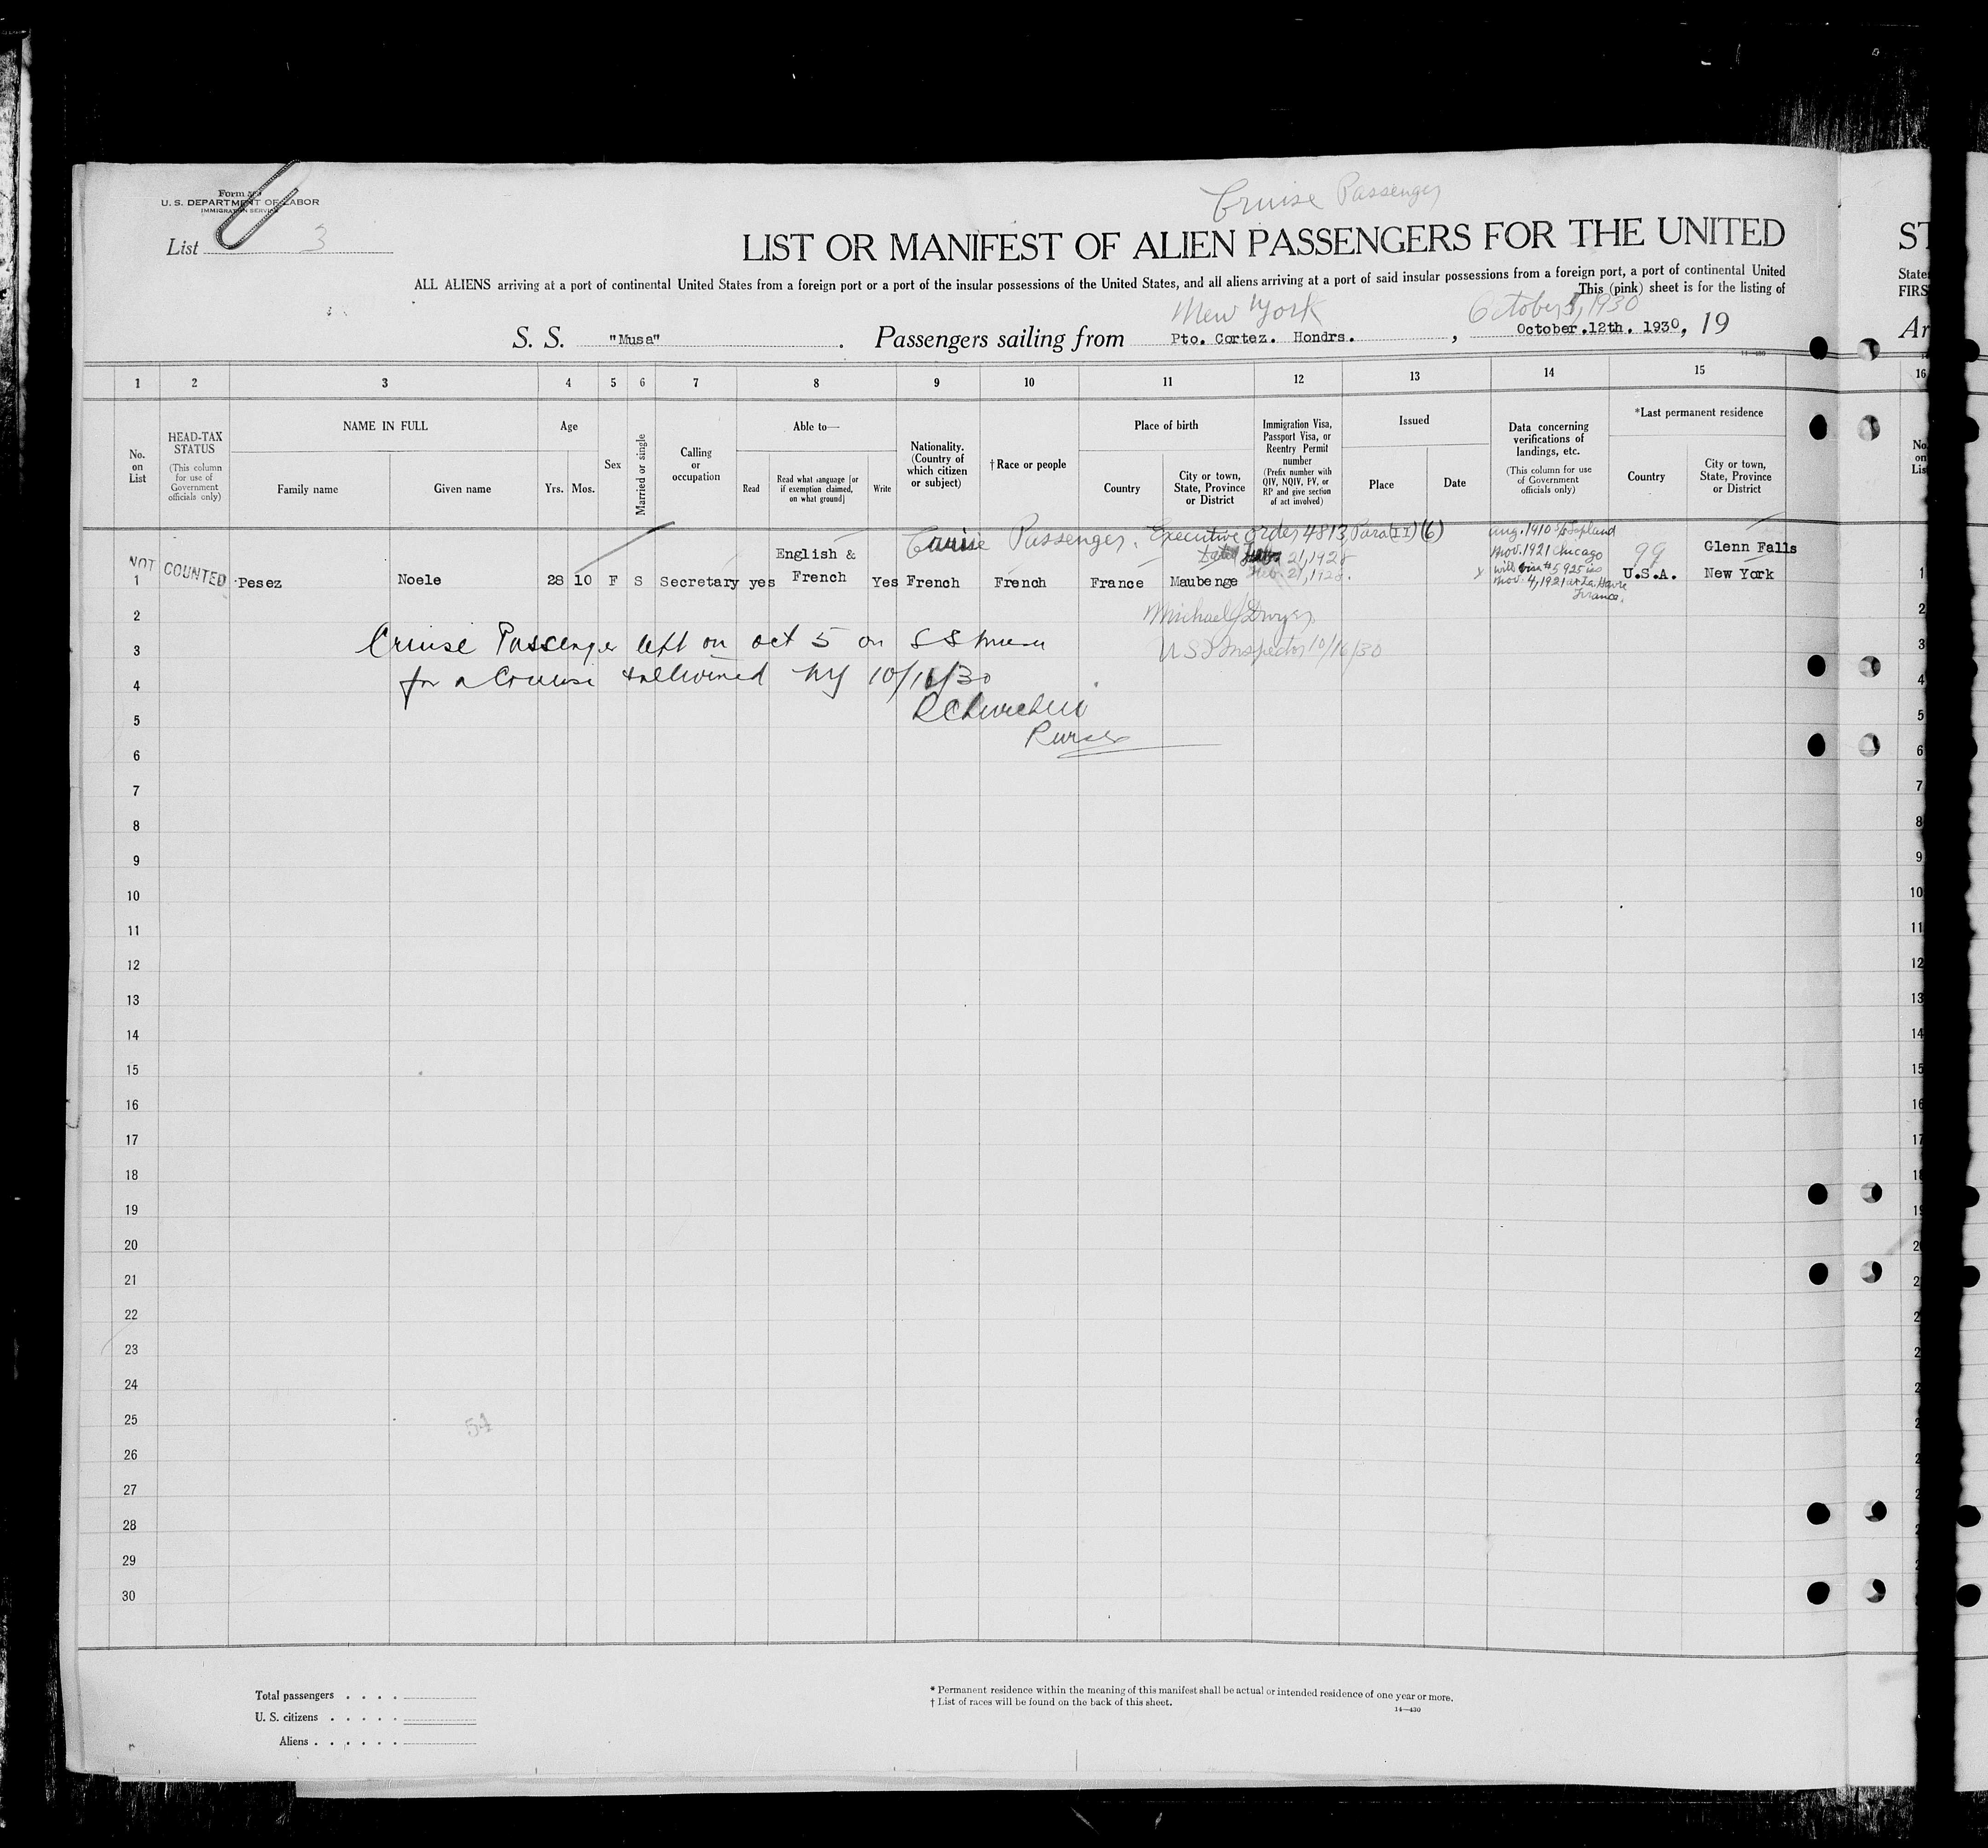 Cruise Passenger
Form
U. S. DEPARTMENT OF LABOR
IMMIGRATION SERVICE
List 3
LIST OR MANIFEST OF ALIEN PASSENGERS FOR THE UNITED
ST
ALL ALIENS arriving at a port of continental United States from a foreign port or a port of the insular possessions of the United States, and all aliens arriving at a port of said insular possessions from a foreign port, a port of continental United
This (pink) sheet is for the listing of
State
FIRS
New York
October 5, 1930
S. S. "Musa" . Passengers sailing from Pto. Cortez. Hondrs. , October.12th. 1930, 19
Ar
14—430
1 2 3 4 5 6 7 8 9 10 11 12 13 14 15 16
No. on List
HEAD-TAX STATUS
(This column for use of Government officials only)
NAME IN FULL
Family name
Given name
Age
Yrs. Mos.
Sex
Married or single
Calling or occupation
Able to—
Read
Read what language [or if exemption claimed, on what ground]
Write
Nationality. (Country of which citizen or subject)
†Race or people
Place of birth
Country
City or town, State, Province or District
Immigration Visa, Passport Visa, or Reentry Permit number
(Prefix number with QIV, NQIV, PV, or RP and give section of act involved)
Issued
Place
Date
Data concerning verifications of landings, etc.
(This column for use of Government officials only)
*Last permanent residence
Country
City or town, State, Province or District
No. on List
Cruise Passenger. Executive order 4813, Para (II) (6)
Dated 21, 1928
Feb. 21, 1928.
Aug. 1910
Nov. 1921 Chicago
visa # 5925
Nov. 4, 1921 at La Havre
France.
99
NOT COUNTED
English &
Glenn Falls
1 Pesez Noele 28 10 F S Secretary yes French Yes French French France Maubenge U.S.A. New York 1
2
Michael Dwyer
3 Cruise Passenger left on Oct 5 on S S Musa
US Inspector 10/16/30
4 for a Cruise & returned NY 10/16/30
5
Purser
6
7
8
9
10
11
12
13
14
15
16
17
18
19
20
21
22
23
24
25
54
26
27
28
29
30
Total passengers . . . .
U. S. citizens . . . . .
Aliens . . . . . .
* Permanent residence within the meaning of this manifest shall be actual or intended residence of one year or more.
† List of races will be found on the back of this sheet.
14—430